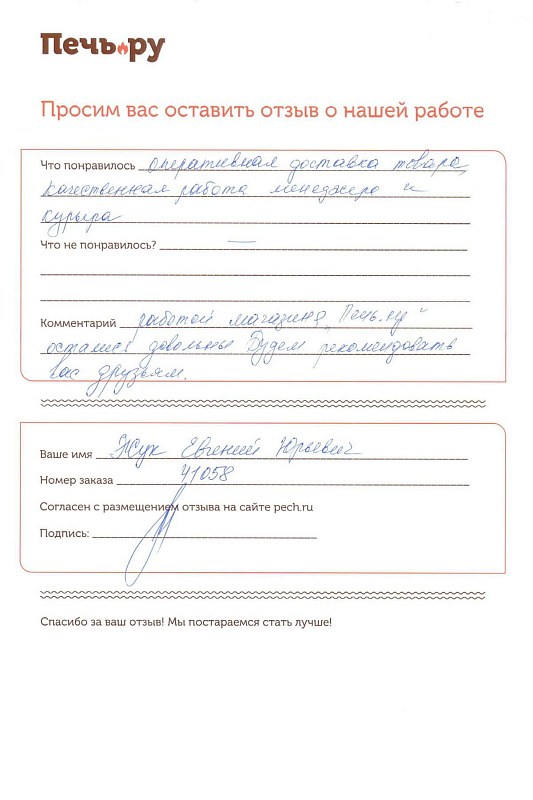 Печь.ру
Просим вас оставить отзыв о нашей работе
Что понравилось оперативная доставка товара,
качественная работа менеджера и
курьера
Что не понравилось? —
Комментарий работой магазина „Печь.ру"
остались довольны Будем рекомендовать
вас друзьям.
Ваше имя Жук Евгений Юрьевич
Номер заказа 41058
Согласен с размещением отзыва на сайте pech.ru
Подпись:
Спасибо за ваш отзыв! Мы постараемся стать лучше!